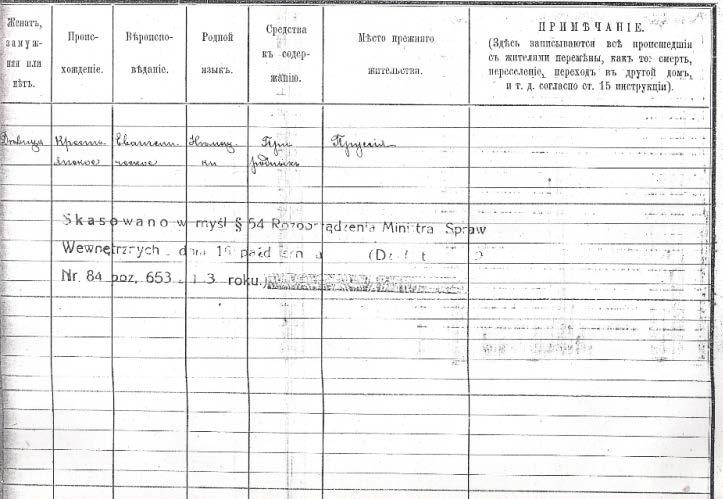 Женатъ,
замуж-
няя или
нѣтъ.
Проис-
хожденіе.
Вѣроиспо-
вѣданіе.
Родной
языкъ.
Средства
къ содер-
жанію.
Мѣсто прежняго
жительства.
ПРИМѢЧАНІЕ.
(Здѣсь записываются всѣ происшедшія
съ жителями перемѣны, какъ то: смерть,
переселеніе, переходъ въ другой домъ,
и т. д. согласно ст. 15 инструкціи).
Дѣвица
Кресть-
янское
Евангели-
ческое
Нѣмец-
кій
При
родныхъ
Пруссія
Skasowano w myśl § 54 Rozporządzenia Ministra Spraw
Wewnętrznych dnia 16 paźd
Nr. 84 poz. 653 3 roku.)